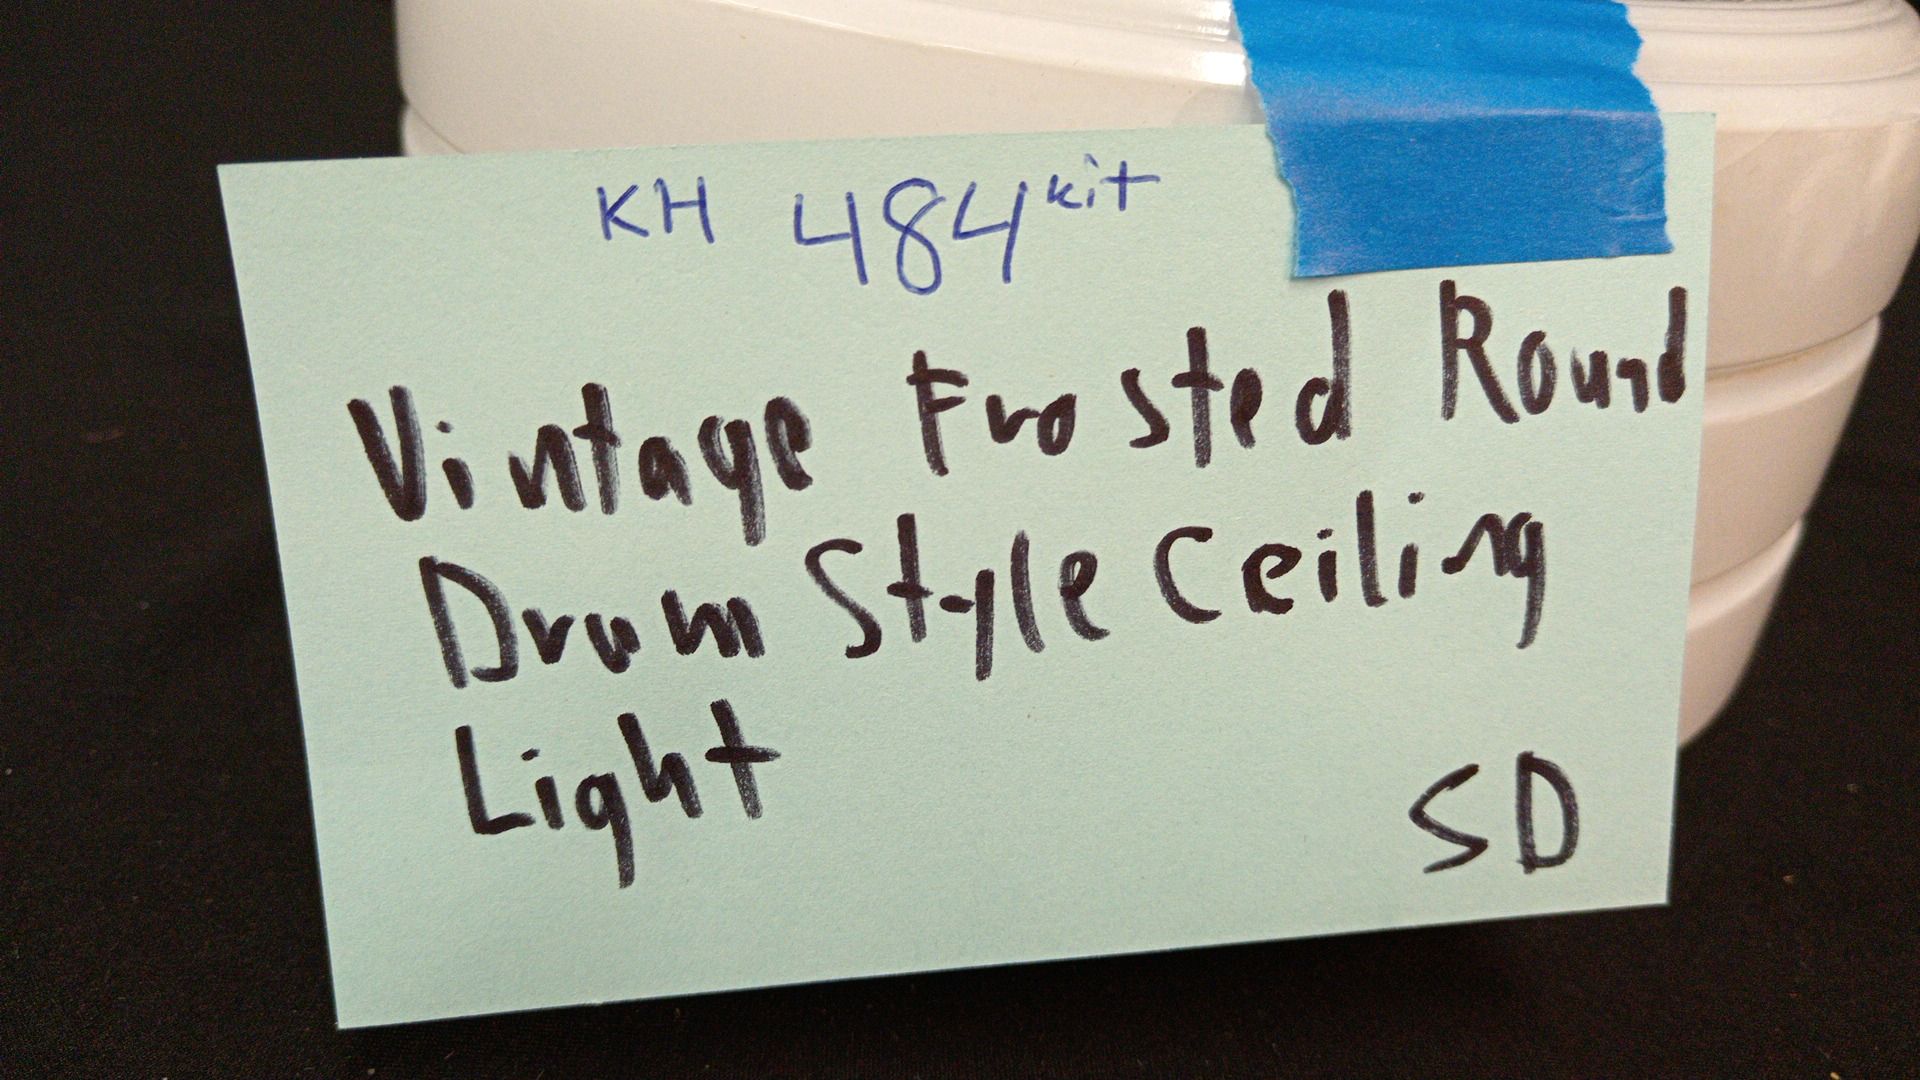 KH 484 kit
Vintage Frosted Round
Drum Style Ceiling
Light
SD